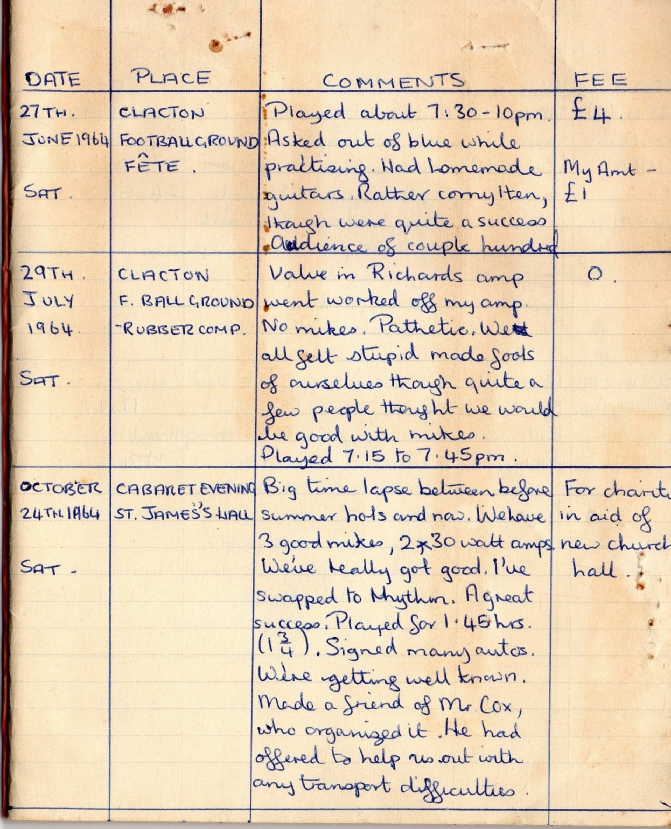 DATE PLACE COMMENTS FEE
27TH. CLACTON Played about 7:30-10pm. £4.
JUNE 1964 FOOTBALL GROUND Asked out of blue while
FÊTE. practizing. Had homemade My Amt -
SAT. guitars. Rather corny then, £1
though were quite a success
Audience of couple hundred
29TH. CLACTON Valve in Richards amp O.
JULY F. BALL GROUND went worked off my amp.
1964. -RUBBER COMP. No mikes. Pathetic. We
all felt stupid made fools
SAT. of ourselves though quite a
few people thought we would
be good with mikes.
Played 7.15 to 7.45pm.
OCTOBER CABARET EVENING Big time lapse between before For charit
24TH 1964 ST. JAMES'S HALL summer hols and now. We have in aid of
3 good mikes, 2x30 watt amps. new church
SAT - We've really got good. I've hall.
swapped to Rhythm. A great
success. Played for 1.45 hrs.
(1 3/4). Signed many autos.
We're getting well known.
Made a friend of Mr Cox,
who organized it. He had
offered to help us out with
any transport difficulties.